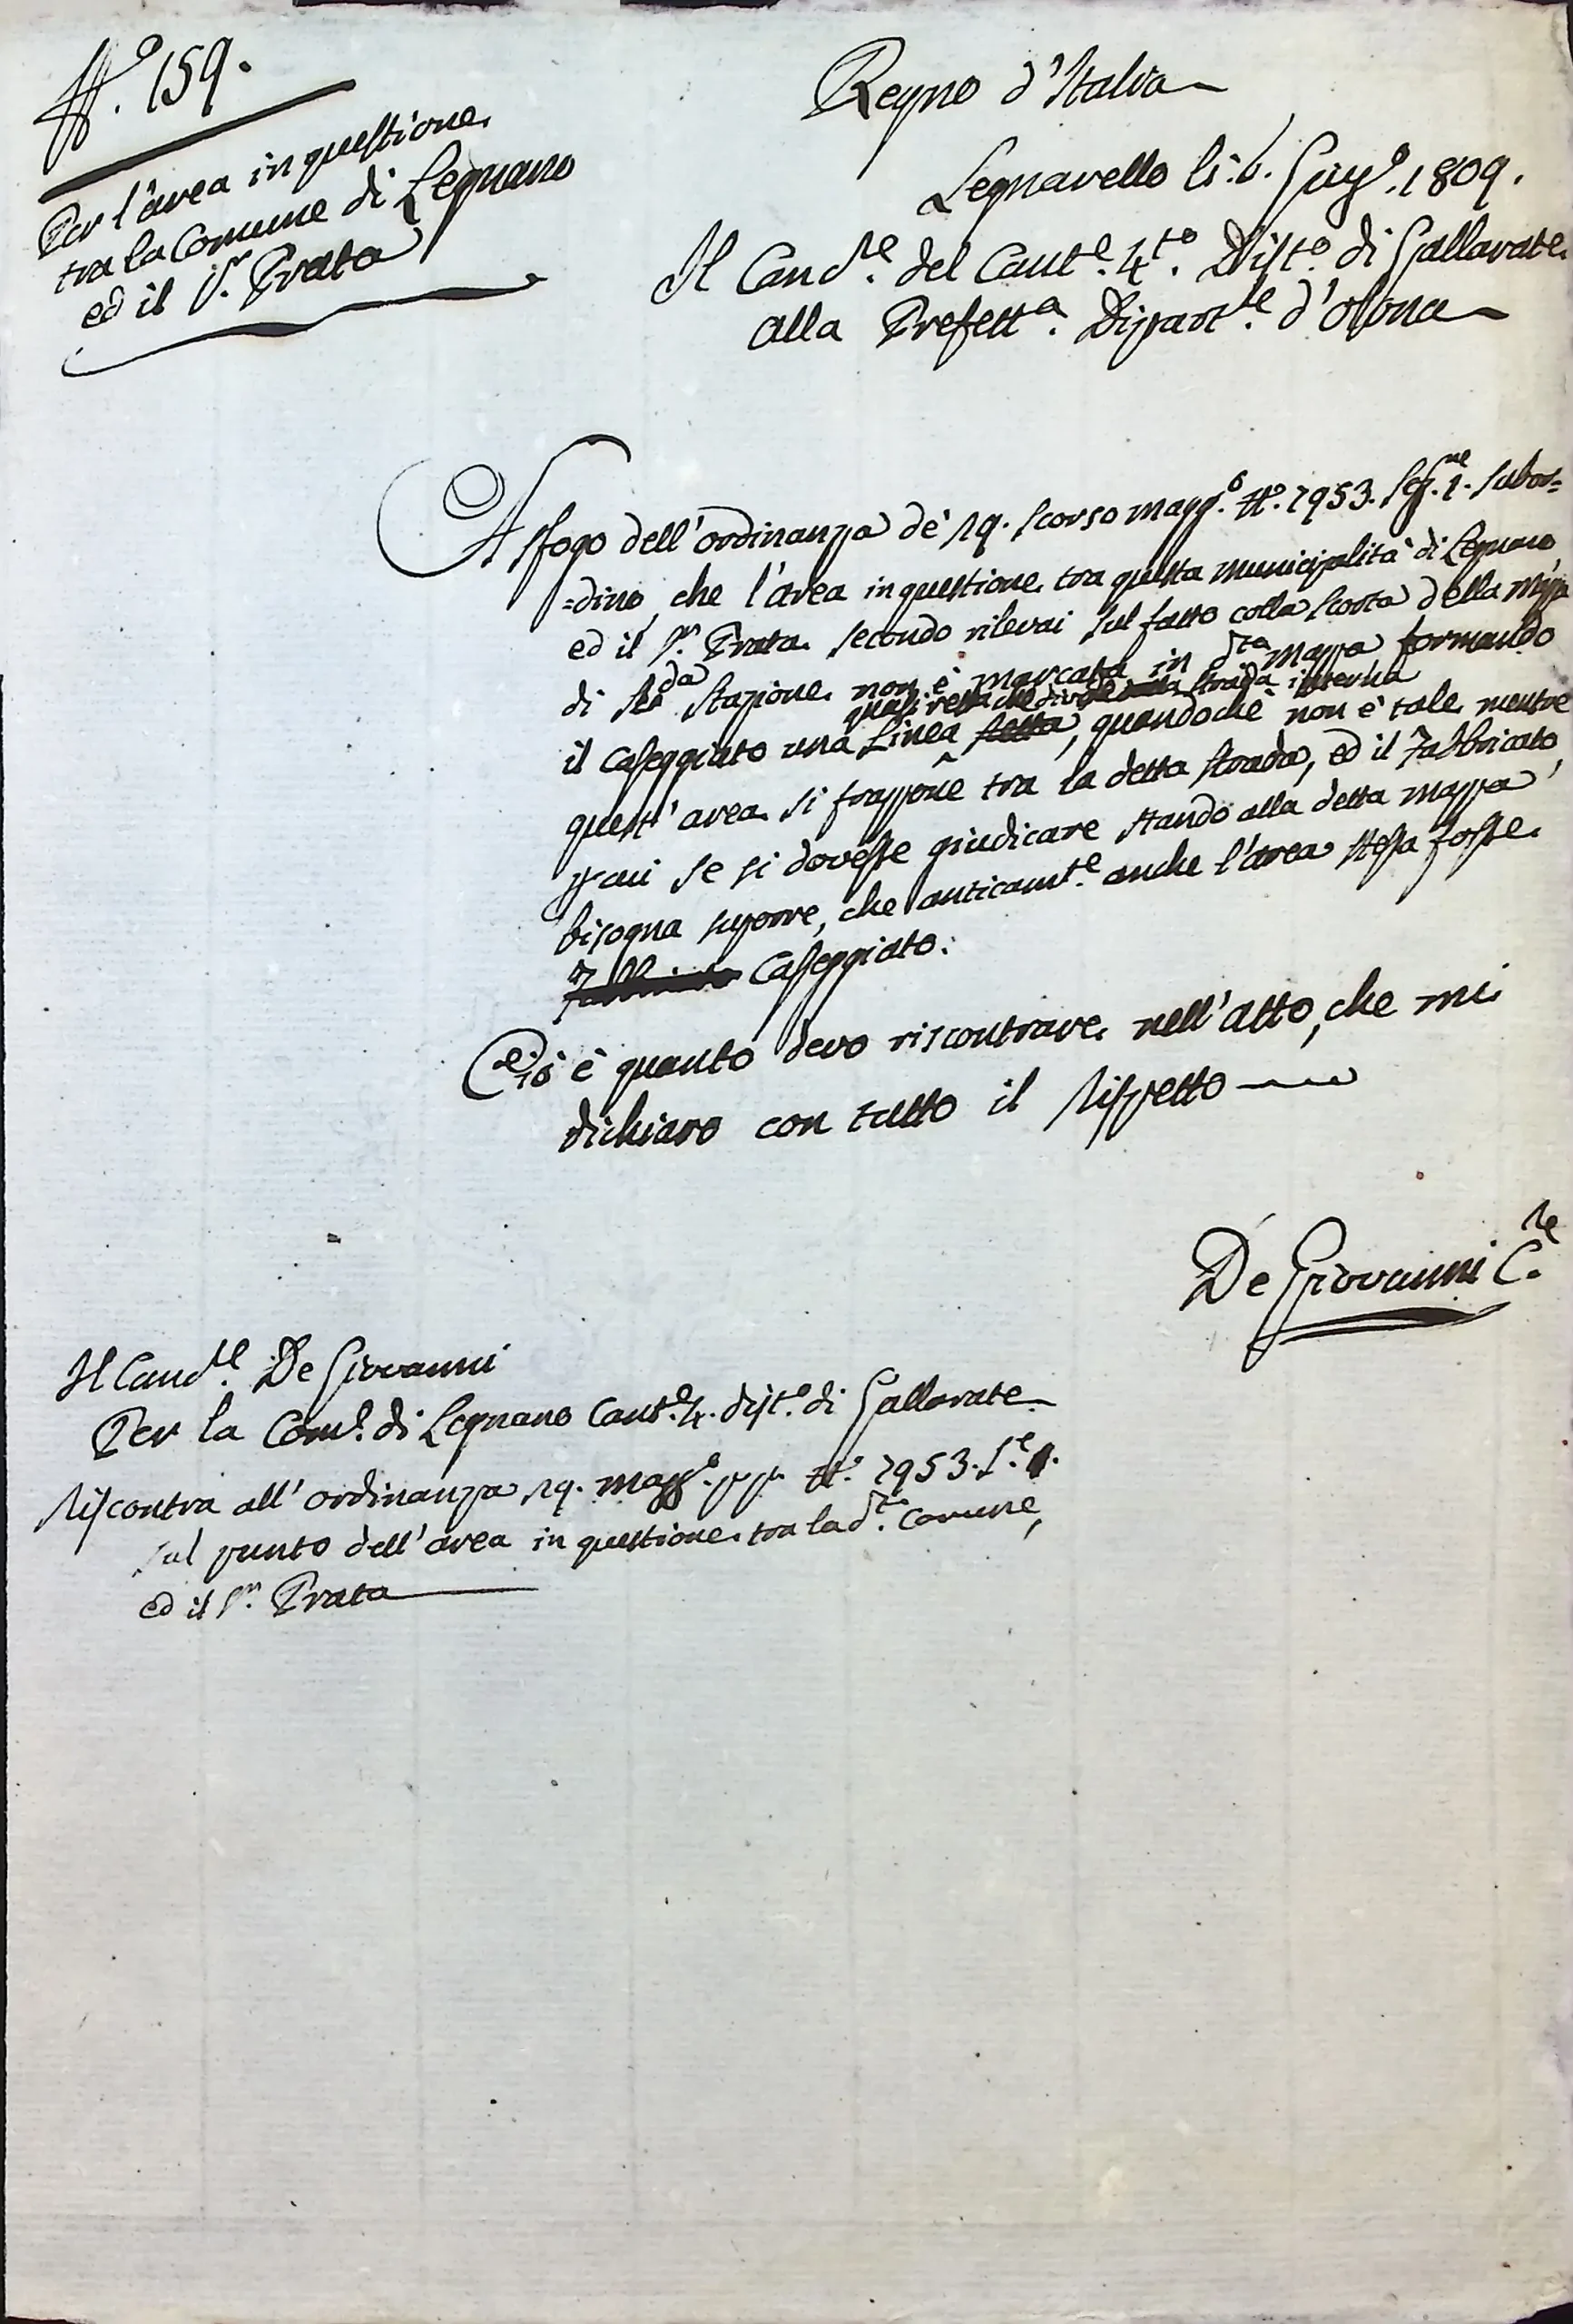 N.º 159.
Per l'area in questione
tra la Comune di Legnano
ed il S.r Prata
Regno d'Italia
Legnarello li 6. Giug.º 1809.
Il Canc.re del Cant.e 4.to Dist.º di Gallarate
alla Prefett.a Dipart.le d'Olona
A sfogo dell'ordinanza de' 19. scorso magg.º N.º 7953. Sez.ne 1. subor=
=dino, che l'area in questione tra questa Municipalità di Legnano,
ed il S.r Prata secondo rilevai sul fatto colla scorta della Mappa
di 2da Stazione non è marcata in d.ta Mappa formando
quasi retta che divide strada interna
il Caseggiato una Linea retta, quandochè non è tale mentre
quest'area si frappone tra la detta strada, ed il Fabbricato,
per cui se si dovesse giudicare stando alla detta Mappa
bisogna suporre, che anticamt.e anche l'area stessa fosse
Fabbricato Caseggiato.
Ciò è quanto devo riscontrare nell'atto, che mi
dichiaro con tutto il rispetto
De Giovanni C.re
Il Canc.re De Giovanni
Per la Com.e di Legnano Cant.e 4. dist.º di Gallarate
Riscontra all'ordinanza 19. magg.º pp. N.º 7953. S.e 1.
sul punto dell'area in questione tra la d.ta Comune,
ed il S.r Prata